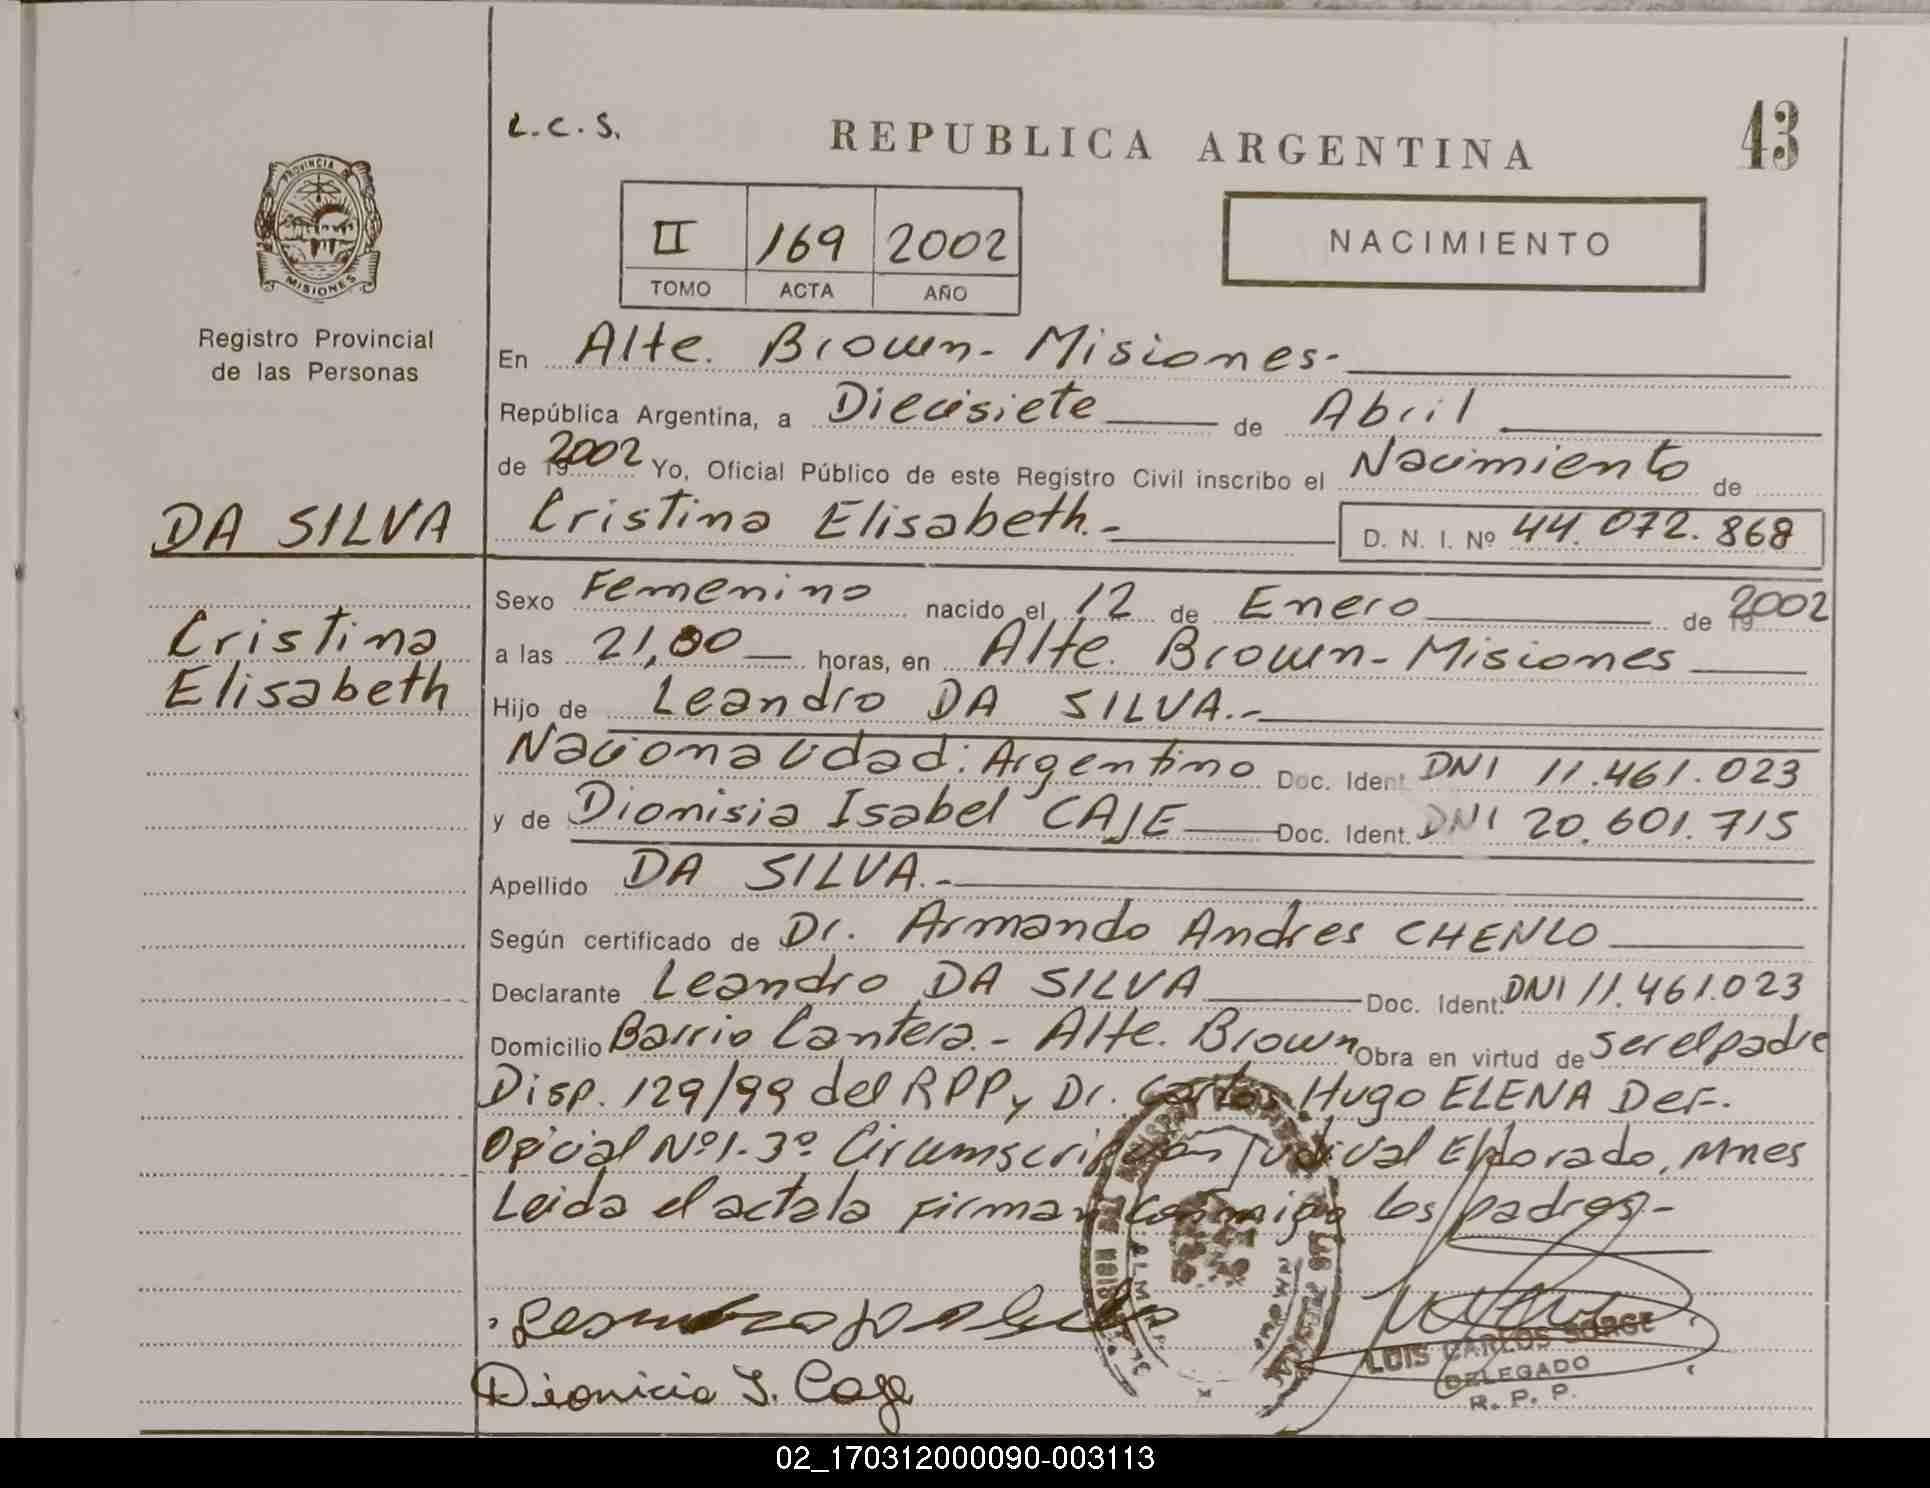 L.C.S.
REPUBLICA ARGENTINA
43
PROVINCIA DE
MISIONES
II 169 2002
TOMO ACTA AÑO
NACIMIENTO
Registro Provincial
de las Personas
En Alte. Brown - Misiones -
República Argentina, a Diecisiete de Abril
de 2002 Yo, Oficial Público de este Registro Civil inscribo el Nacimiento de
DA SILVA
Cristina Elisabeth.-
D. N. I. Nº 44.072.868
Sexo Femenino nacido el 12 de Enero de 2002
Cristina
Elisabeth
a las 21,00 horas, en Alte. Brown - Misiones
Hijo de Leandro DA SILVA.-
Nacionalidad: Argentino Doc. Ident. DNI 11.461.023
y de Dionisia Isabel CAJE Doc. Ident. DNI 20.601.715
Apellido DA SILVA.-
Según certificado de Dr. Armando Andres CHENLO
Declarante Leandro DA SILVA Doc. Ident. DNI 11.461.023
Domicilio Barrio Cantera.- Alte. Brown Obra en virtud de ser el padre
Disp. 129/99 del RPP y Dr. Carlos Hugo ELENA Def.
Oficial Nº1. 3º Circumscripcion Judicial Eldorado, Mnes
Leida el acta la firman conmigo los padres.-
Dionicia I. Caje
LUIS CARLOS SORGE
DELEGADO
R. P. P.
02_170312000090-003113